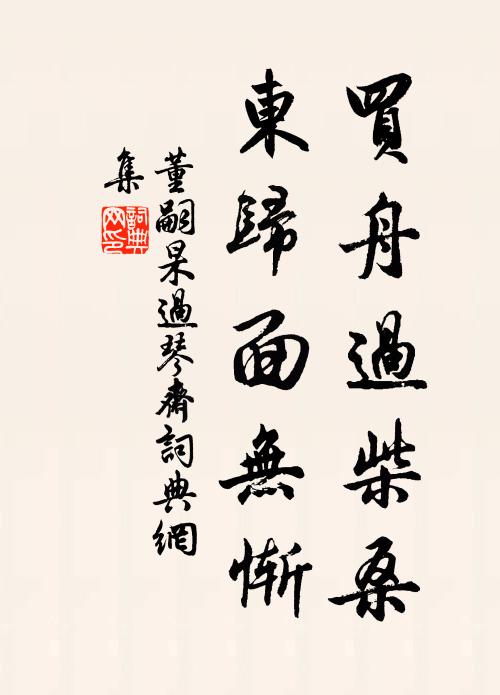 買舟過柴桑
東歸面無慚
董嗣杲過琴齋詞典網
集
詞典網印